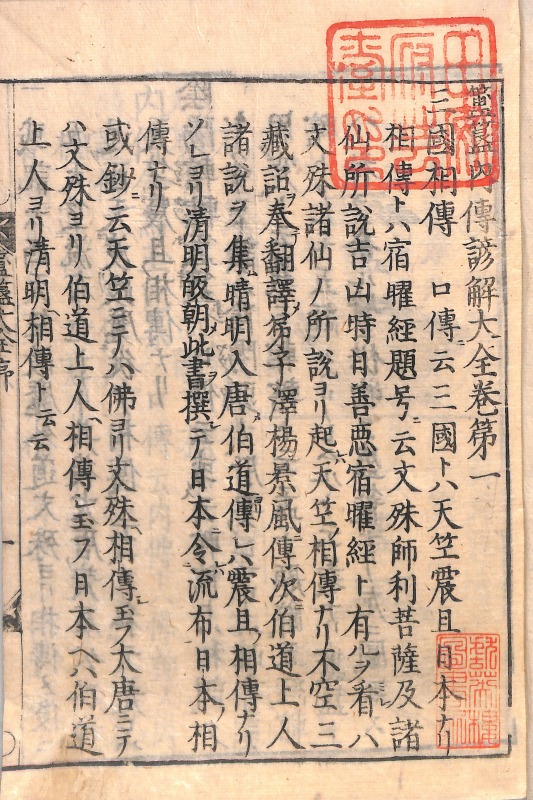 簠簋内傳諺解大全巻第一
三國相傳　口傳ニ云三國トハ天竺震旦日本ナリ
相傳トハ宿曜經題号ニ云文殊師利菩薩及諸
仙所説吉凶時日善悪宿曜経ト有ルヲ看ハ
文殊諸仙ノ所説ヨリ起ル天竺ノ相傳ナリ不空三
藏詔ヲ奉翻譯メ弟子澤楊景風傳次伯道上人
諸説ヲ集晴明入唐伯道傳ルハ震旦ノ相傳ナリ
ソレヨリ清明皈朝メ此書撰ニテ日本令流布日本ノ相
傳ナリ
或鈔ニ云天竺ニテハ佛ヨリ文殊ヘ相傳シ玉フ大唐ニテ
ハ文殊ヨリ伯道上人ヘ相傳シ玉フ日本ヘハ伯道
上人ヨリ清明ヘ相傳ト云云